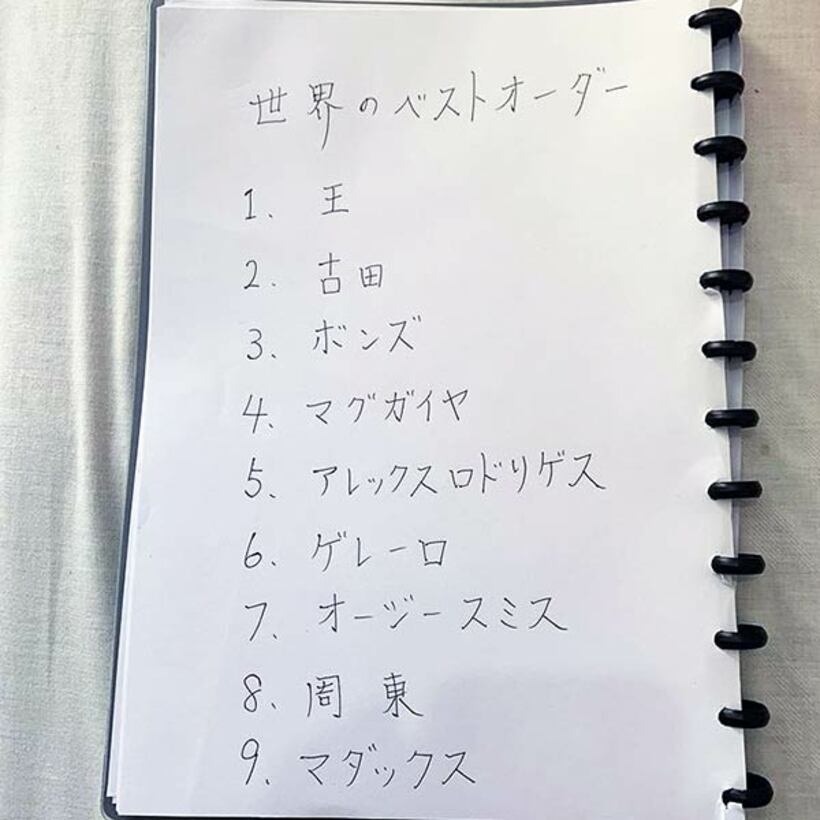 世界のベストオーダー
1. 王
2. 古田
3. ボンズ
4. マグガイヤ
5. アレックスロドリゲス
6. ゲレーロ
7. オージースミス
8. 周東
9. マダックス